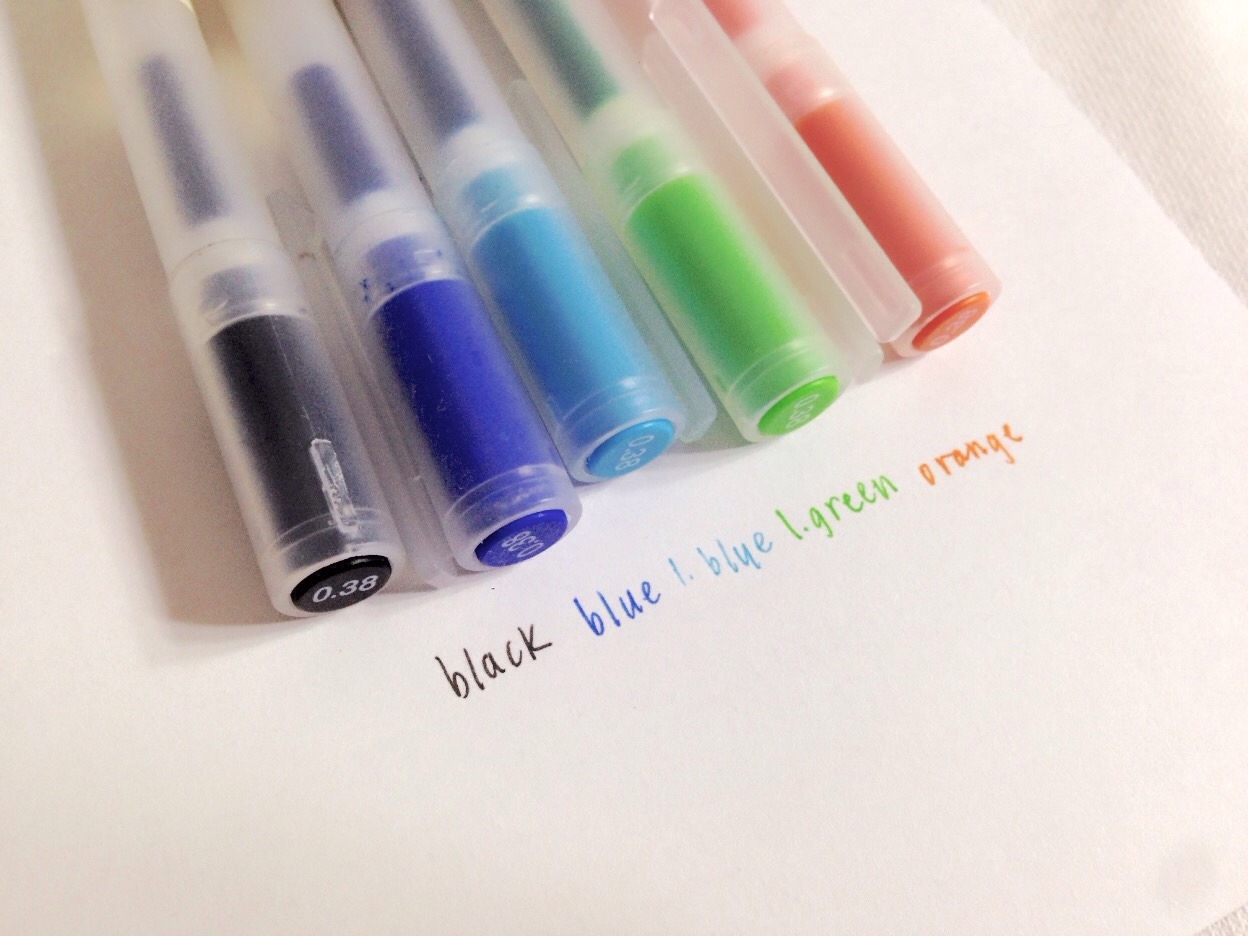 0.38
0.38
0.38
0.38
black blue l. blue l.green orange